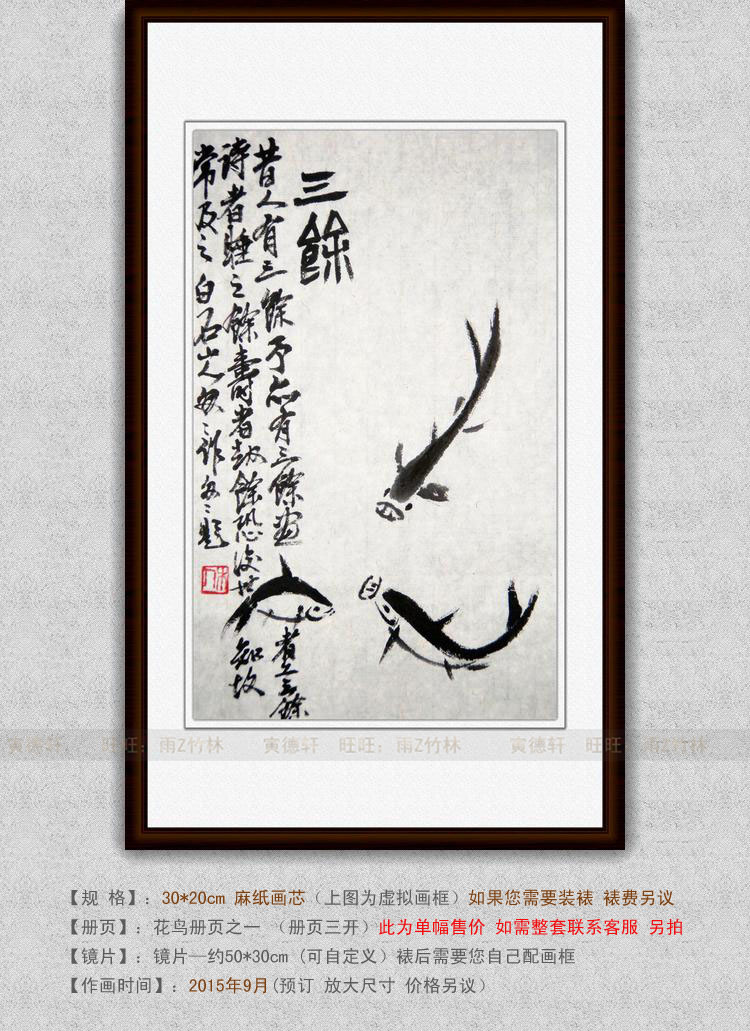 三餘
昔人有三餘予亦有三餘畫者工之餘
詩者睡之餘壽者劫餘恐後世不知故
常及之白石山人題
寅德轩， 旺旺：雨Z竹林 寅德轩 旺旺：雨Z竹林 寅德轩 旺旺：雨Z竹林
【规 格】：30*20cm 麻纸画芯（上图为虚拟画框）如果您需要装裱 裱费另议
【册页】：花鸟册页之一 （册页三开）此为单幅售价 如需整套联系客服 另拍
【镜片】：镜片—约50*30cm (可自定义）裱后需要您自己配画框
【作画时间】：2015年9月(预订 放大尺寸 价格另议）